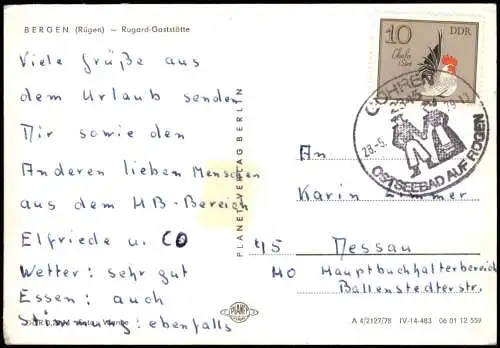 BERGEN (Rügen) — Rugard-Gaststätte
Viele Grüße aus
dem Urlaub senden
Dir sowie den
Anderen lieben Menschen
aus dem HB-Bereich
Elfriede u. CO
Wetter: sehr gut
Essen: auch
Stimmung: ebenfalls
PLANET-VERLAG BERLIN
PLANET
10
DDR
GÖHREN
2345
28.-5.
79.12
OSTSEEBAD AUF RÜGEN
An
Karin
45 Dessau
HO Hauptbuchhalterbereich
Ballenstedterstr.
A 4/2127/78 IV-14-483 06 01 12 559